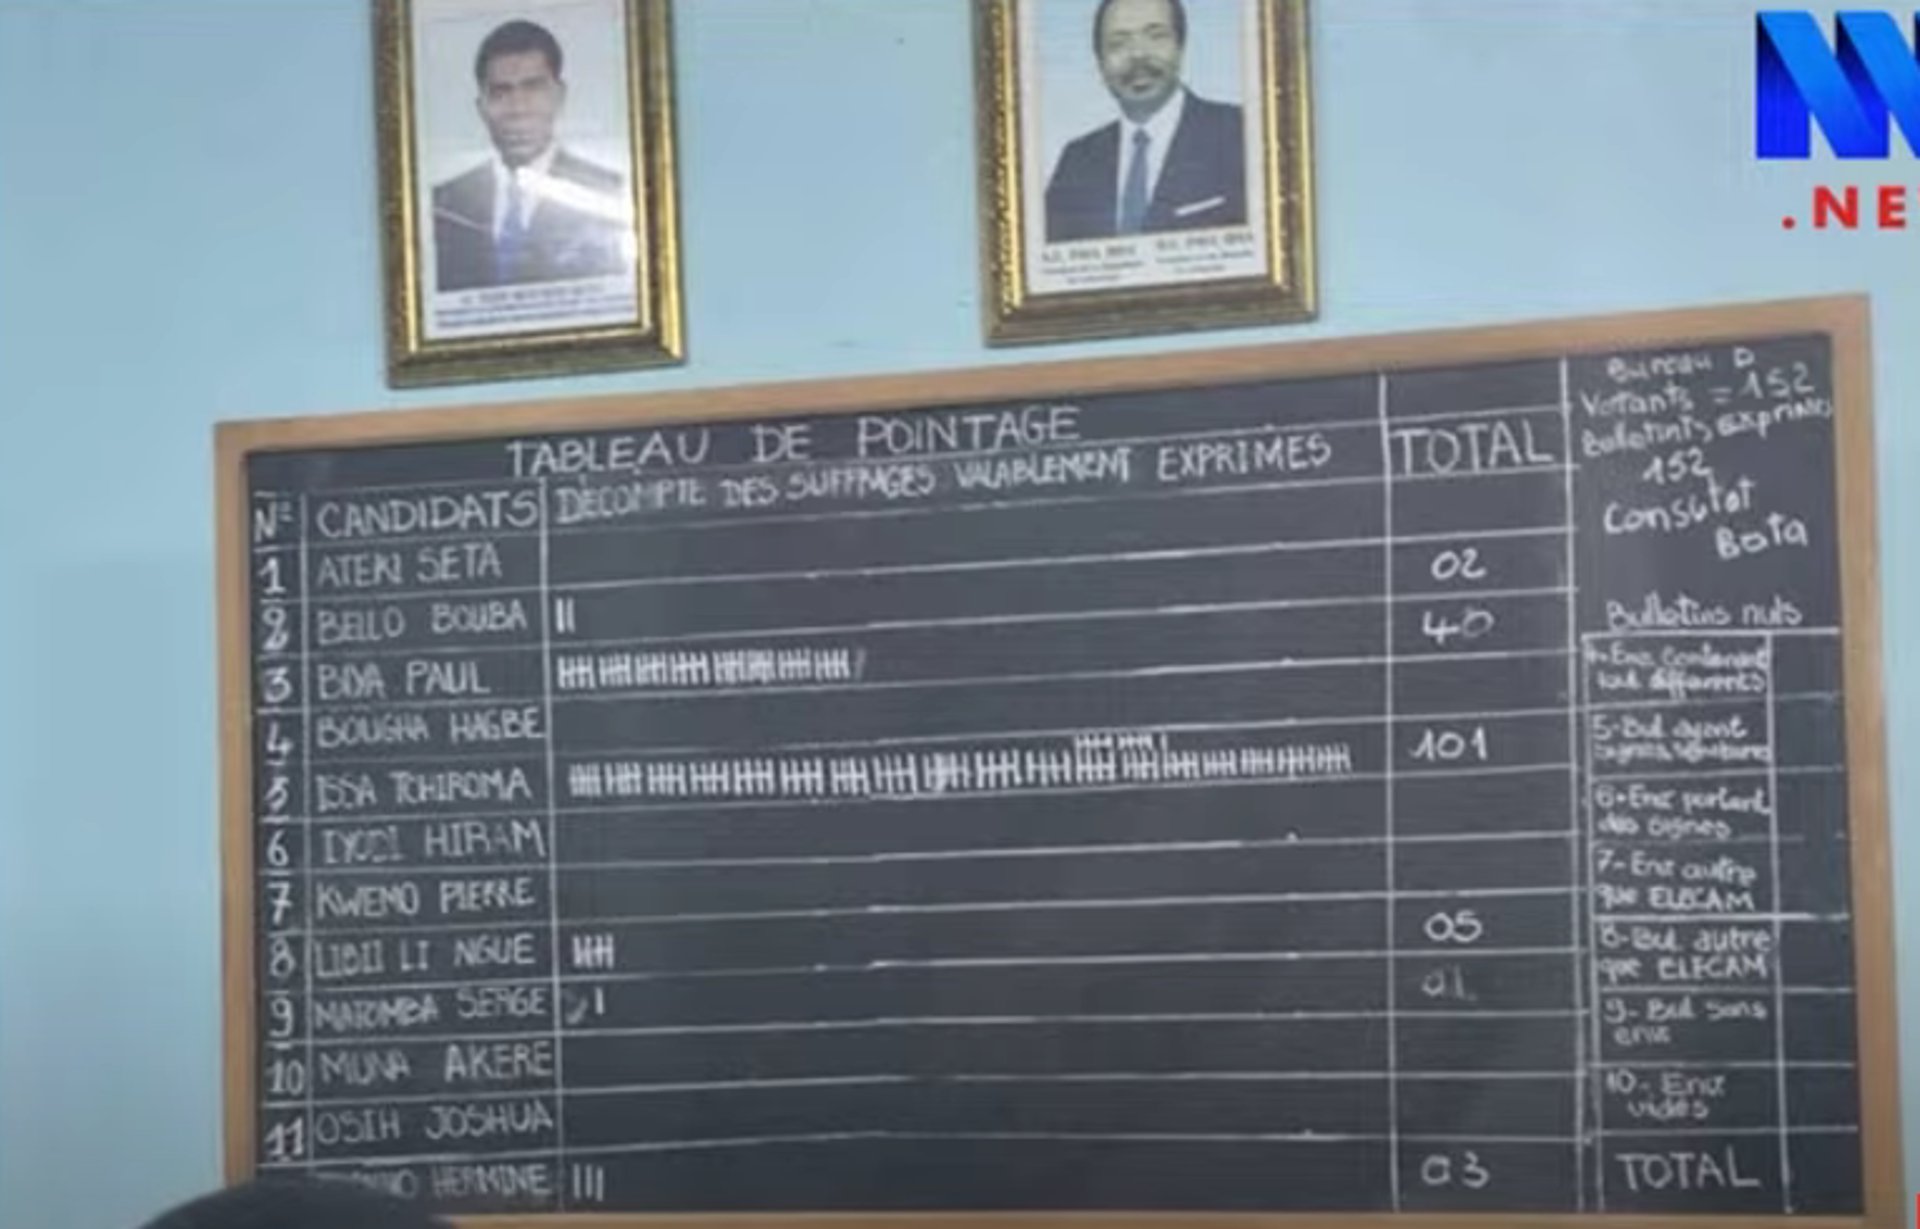 .NE
TABLEAU DE POINTAGE
N° CANDIDATS DECOMPTE DES SUFFRAGES VALABLEMENT EXPRIMES TOTAL
1 ATEKI SETA
2 BELLO BOUBA 02
3 BIYA PAUL 40
4 BOUGHA HAGBE
5 ISSA TCHIROMA 101
6 IYODI HIRAM
7 KWEMO PIERRE
8 LIBII LI NGUE 05
9 MATOMBA SERGE 01
10 MUNA AKERE
11 OSIH JOSHUA
HERMINE 03
Bureau D
Votants = 152
Bulletints exprimés
152
Consulat
Bata
Bulletins nuls
4-Enc contenant
bul differents
5-Bul ayant
signes
6-Env portant
des signes
7-Env autre
que ELECAM
8-Bul autre
que ELECAM
9-Bul sans
env
10-Env
vides
TOTAL